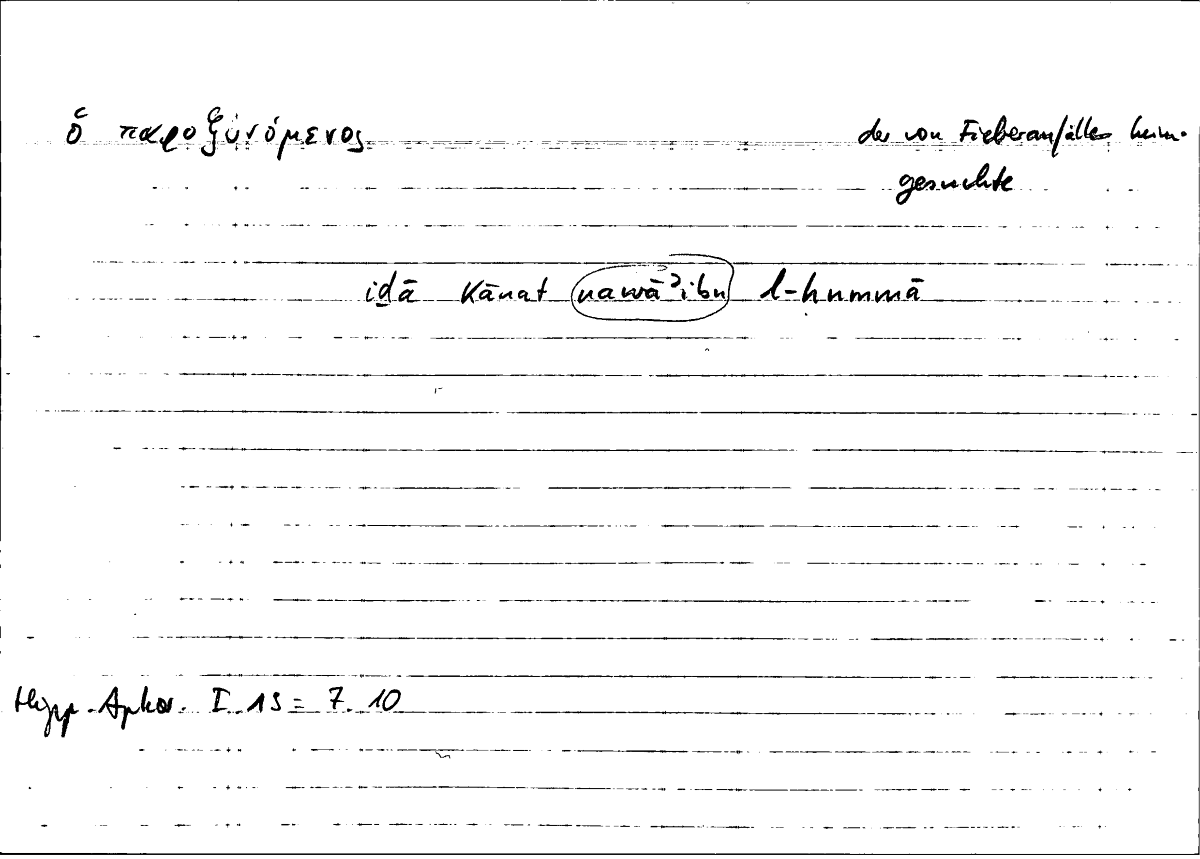 ὁ παροξυνόμενος der von Fieberanfällen heim-
gesuchte
iḏā kānat nawāʾibu l-ḥummā
Hipp. Aphor. I 19 = 7. 10